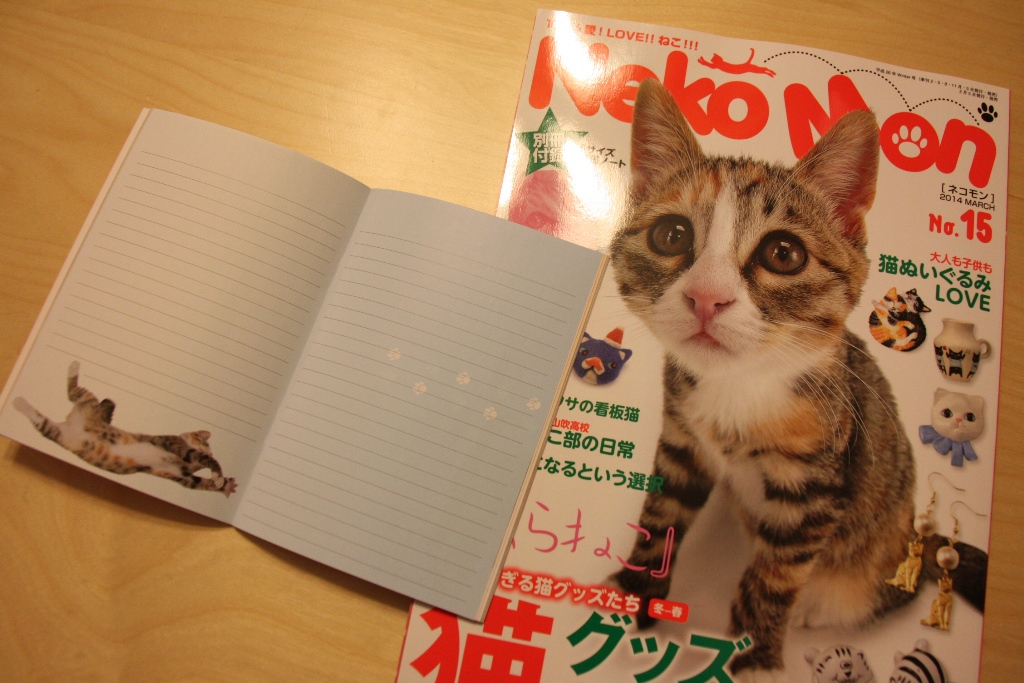 愛!LOVE!!ねこ!!!
Neko Mon
別冊
付録
サイズ
ノート
[ネコモン]
2014 MARCH
No.15
大人も子供も
猫ぬいぐるみ
LOVE
サの看板猫
山吹高校
こ部の日常
になるという選択
らねこ』
ぎる猫グッズたち 冬ー春
猫グッズ